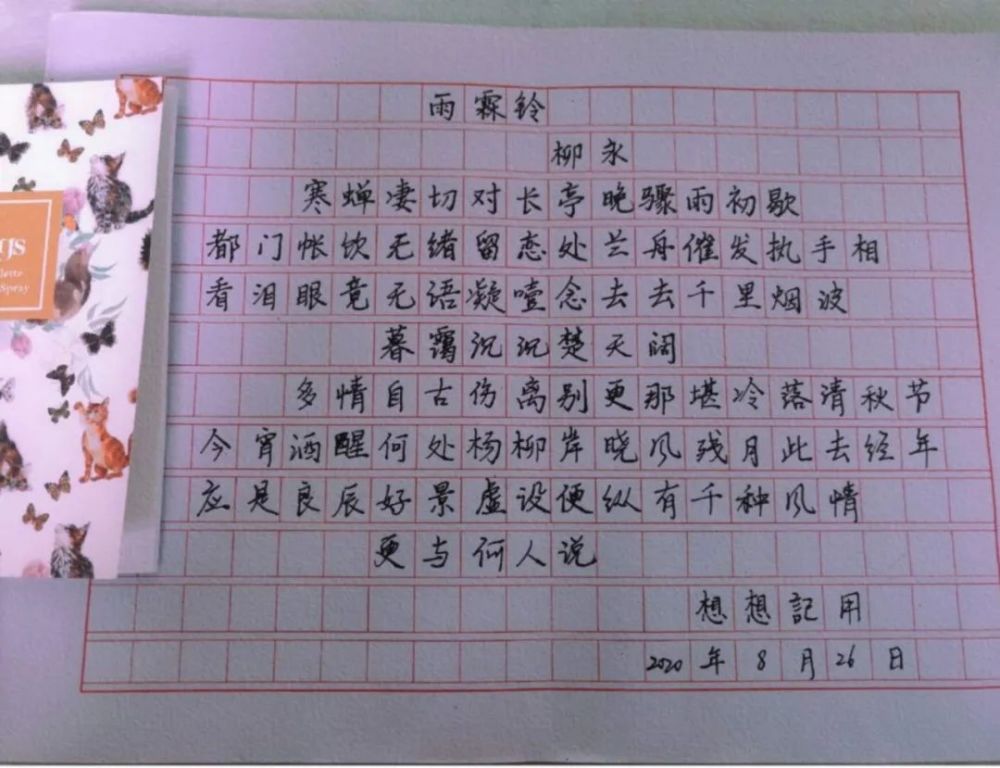 雨霖铃
柳永
寒蝉凄切对长亭晚骤雨初歇
都门帐饮无绪留恋处兰舟催发执手相
看泪眼竟无语凝噎念去去千里烟波
暮霭沉沉楚天阔
多情自古伤离别更那堪冷落清秋节
今宵酒醒何处杨柳岸晓风残月此去经年
应是良辰好景虚设便纵有千种风情
更与何人说
想想記用
2020年8月26日
Spray